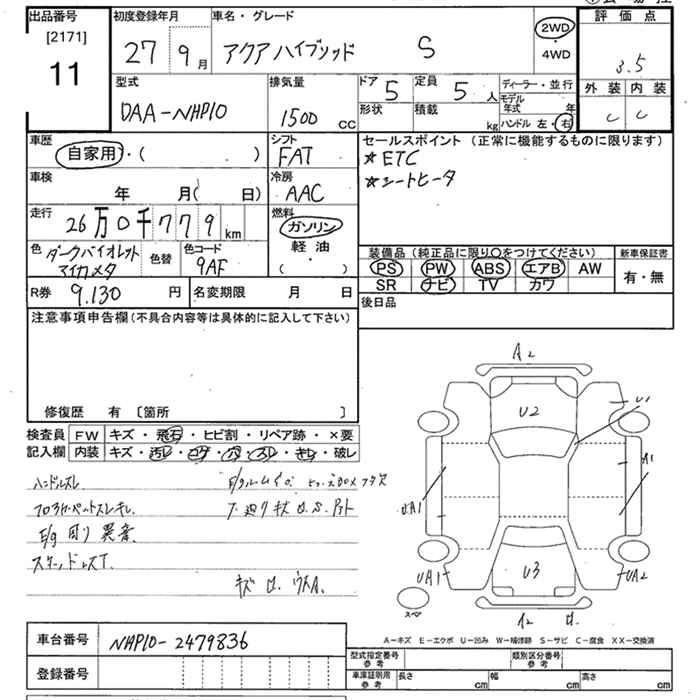 出品番号
[2171]
11
初度登録年月
27 9月
車名・グレード
アクア ハイブリッド S
2WD
4WD
評価点
3.5
外装 内装
C C
型式
DAA-NHP10
排気量
1500 CC
ドア 5
形状
定員 5 人
積載 kg
ディーラー・並行
モデル年式 年
ハンドル 左・右
車歴
自家用・( )
シフト
FAT
セールスポイント (正常に機能するものに限ります)
★ETC
★シートヒータ
車検
年 月( 日)
冷房
AAC
走行
26万0千779km
燃料
ガソリン
軽油
( ・ )
色 ダークバイオレットマイカメタ
色替
色コード
9AF
装備品 (純正品に限り〇をつけてください)
PS PW ABS エアB AW
SR ナビ TV カワ
新車保証書
有・無
R券 9.130 円
名変期限 月 日
後日品
注意事項申告欄(不具合内容等は具体的に記入して下さい)
修復歴 有 〔箇所 〕
検査員記入欄
FW キズ・飛石・ヒビ割・リペア跡・×要
内装 キズ・汚レ・コゲ・穴・スレ・キレ・破レ
ハンドルスレ
フロアカーペットスレキレ
E/g 周り 異音
キズ
A2
U2
U1
A1
UA1
UA1
U3
UA2
A2
スペア
A-キズ E-エクボ U-凹み W-補修跡 S-サビ C-腐食 XX-交換済
車台番号 NHP10-2479836
登録番号
型式指定番号 参考
類別区分番号 参考
車庫証明用 参考
長さ cm
幅 cm
高さ cm